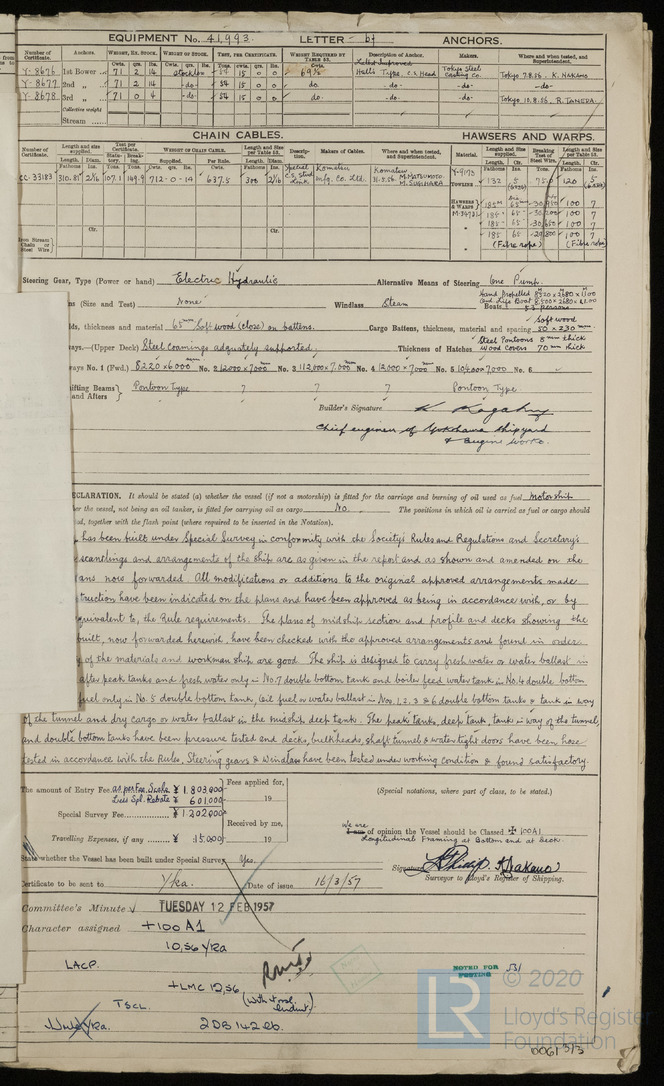 EQUIPMENT No. 41,993. LETTER - bf ANCHORS.
Number of Certificate. Anchors. WEIGHT, EX. STOCK. WEIGHT OF STOCK. TEST, PER CERTIFICATE. WEIGHT REQUIRED BY TABLE 53. Description of Anchor. Makers. Where and when tested, and Superintendent.
Cwts. qrs. lbs. Cwts. qrs. lbs. Tons. cwts. qrs. lbs. Cwts.
Y-8676 1st Bower 71 2 14 Stockless 54 15 0 0 69½ Halls Type. C.S. Head Tokyo Steel Casting Co. Tokyo 7.8.56. K. NAKANO
Y-8677 2nd " 71 2 14 -do- 54 15 0 0 do. -do- -do- -do-
Y-8678 3rd " 71 0 4 -do- 54 15 0 0 do. -do- -do- Tokyo 10.8.56. R. TAMERA.
Collective weight
Stream
CHAIN CABLES. HAWSERS AND WARPS.
Number of Certificate. Length and size supplied. Test per Certificate. WEIGHT OF CHAIN CABLE. Length and Size per Table 53. Description. Makers of Cables. Where and when tested, and Superintendent. Material. Length and Size supplied. Breaking Test of Steel Wire. Length and Size per Table 53.
Length. Diam. Statutory. Breaking. Supplied. Per Rule. Length. Diam. Length. Cir. Length. Cir.
CC-33183 310.81 2 1/16 107.1 149.9 712-0-14 637.5 300 2 1/16 Special C.S. Stud Link Komatsu Mfg. Co. Ltd. Komatsu M. MATSUMOTO M. SUGIHARA
Y-9170 TOWLINE 132 5 75.0 120
HAWSERS & WARPS 185 65 100 7
M-34721 185 65 100 7
" 185 65 100 7
" 185 65 100 7
(Fibre rope) (Fibre rope)
Iron Stream Chain or Steel Wire Cir. Cir.
Steering Gear, Type (Power or hand) Electric Hydraulic Alternative Means of Steering One Pump.
(Size and Test) None Windlass Steam Boats
Hand Propelled 8520 x 2680 x 1100
53 persons
thickness and material 65 mm Soft wood (close) on battens. Cargo Battens, thickness, material and spacing Soft wood 50 x 230 mm.
(Upper Deck) Steel Coamings adquately supported. Thickness of Hatches Steel Pontoons 8 mm thick
Wood covers 70 mm thick
No. 1 (Fwd.) 8220 x 6000 mm No. 2 12000 x 7000 mm No. 3 112,000 x 7,000 mm No. 4 12,000 x 7000 mm No. 5 10,400 x 7000 No. 6
Shifting Beams and Afters } Pontoon Type " " " Pontoon Type.
Builder's Signature
Chief engineer of Yokohama Shipyard
& Engine Works.
DECLARATION. It should be stated (a) whether the vessel (if not a motorship) is fitted for the carriage and burning of oil used as fuel motorship
the vessel, not being an oil tanker, is fitted for carrying oil as cargo No. The positions in which oil is carried as fuel or cargo should
together with the flash point (where required to be inserted in the Notation).
has been built under Special Survey in conformity with the Society's Rules and Regulations and Secretary's
scantlings and arrangements of the ship are as given in the report and as shown and amended on the
now forwarded. All modifications or additions to the original approved arrangements made
have been indicated on the plans and have been approved as being in accordance with, or by
to, the Rule requirements. The plans of midship section and profile and decks showing the
built, now forwarded herewith, have been checked with the approved arrangements and found in order.
of the materials and workmanship are good. The ship is designed to carry fresh water or water ballast in
after peak tanks and fresh water only in No.7 double bottom tank and boiler feed water tank in No.4 double bottom
fuel only in No. 5 double bottom tank, Oil fuel or water ballast in Nos. 1, 2, 3 & 6 double bottom tanks & tank in way
of the tunnel and dry cargo or water ballast in the midship deep tank. The peak tanks, deep tank, tanks in way of the tunnel,
and double bottom tanks have been pressure tested and decks, bulkheads, shaft tunnel & watertight doors have been hose
tested in accordance with the Rules. Steering gears & Windlass have been tested under working condition & found satisfactory.
The amount of Entry Fee as per Fee Scale ¥ 1,803,000
Less Spl. Rebate ¥ 601,000
Special Survey Fee ¥ 1,202,000
Travelling Expenses, if any ¥ 15,000
Fees applied for, 19
Received by me, 19
(Special notations, where part of class, to be stated.)
We are
I am of opinion the Vessel should be Classed ✠ 100A1
Longitudinal Framing at Bottom and at Deck.
State whether the Vessel has been built under Special Survey Yes.
Signature
Surveyor to Lloyd's Register of Shipping.
Certificate to be sent to Yka. Date of issue 16/3/57
Committee's Minute TUESDAY 12 FEB 1957
Character assigned +100 A1
10,56 Yka
LACP.
+LMC 12,56
TSCL.
2DB 142 lb.
NOTED FOR POSTING
LR © 2020
Lloyd's Register Foundation
0061 3/3